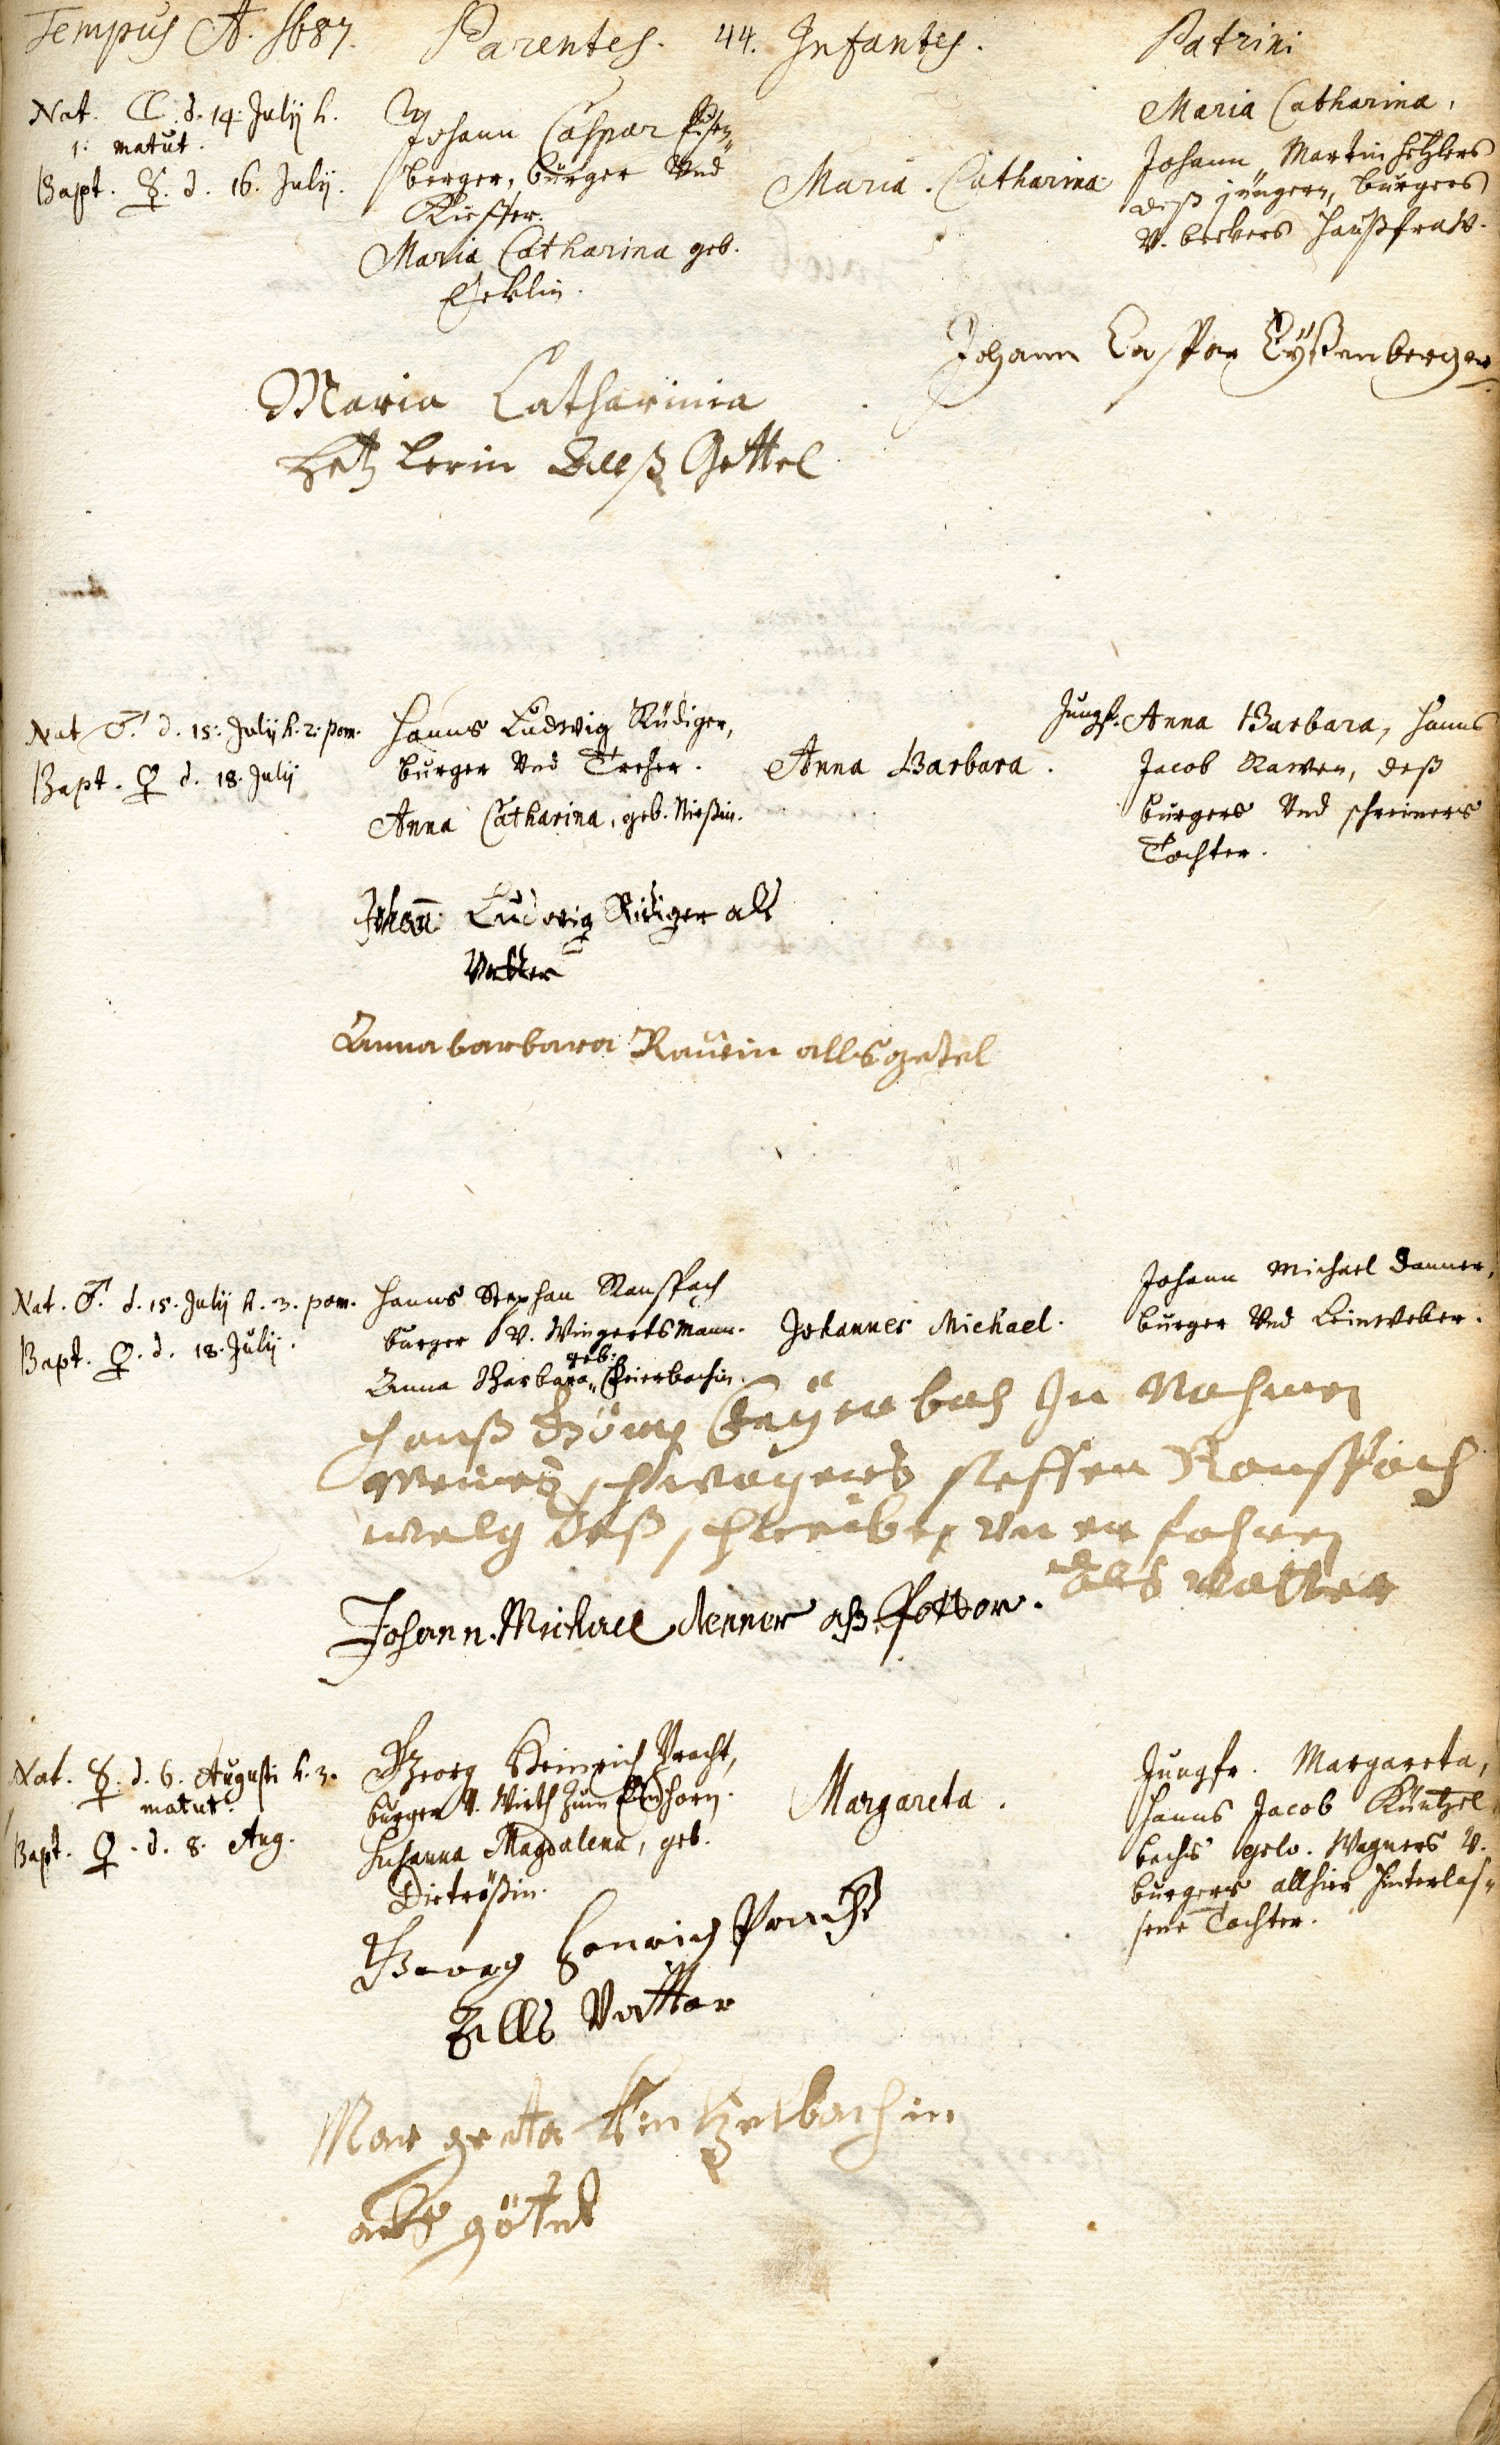 Tempus A. 1687. Parentes. 44. Infantes. Patrini
Nat. ☾. d. 14. Julij h.
1. matut.
Bapt. ☿. d. 16. Julij.
Johann Caspar Eisen„
berger, burger Vnd
Kieffer.
Maria Catharina geb.
Maria. Catharina
Maria Catharina,
Johann Martin Hetzlers
deß jüngern, burgers
V. beckers haußfraw.
Johann Casper Eÿßenberger
Maria Catharinia
Hetzlerin Alleß Gettel
Nat. ♂. d. 15. Julij h. 2. pom.
Bapt. ♀ d. 18. July
Hanns Ludwig Rüdiger,
burger Vnd Dreher.
Anna Catharina, geb. Nießin.
Anna Barbara.
Jungf. Anna Barbara, Hanns
Jacob Rawen, deß
burgers Vnd schreiners
Tochter.
Johañ Ludwig Ridiger als
Vatter
Anna barbara Rauwin alls getel
Nat. ♂. d. 15. Julij h. 3. pom.
Bapt. ♀. d. 18. Julij.
Hanns Stephan Ranspach
burger V. Wingertsmann.
geb.
Anna Barbara, Feierbachin.
Johannes Michael.
Johann Michael Danner,
burger Vnd Leinweber.
Hanß In Nahmen
meines schwagers steffen Ranspach
welg deß schreiben vn er fahren
als vatter
Johann. Michael denner alß Pfetter.
Nat. ☿. d. 6. Augusti h. 3.
matut.
Bapt. ♀. d. 8. Aug.
Georg Heinrich Pracht,
burger V. Wirth Zum Einhorn.
Susanna Magdalena, geb.
Margareta.
Jungfr. Margareta,
Hanns Jacob Küntzel„
bachs gew. Wagners V.
burgers allhier hinterlas„
sene Tochter.
Georg Henrich Pracht
Alls Vatter
Margreta Kintzelbachin
als götel